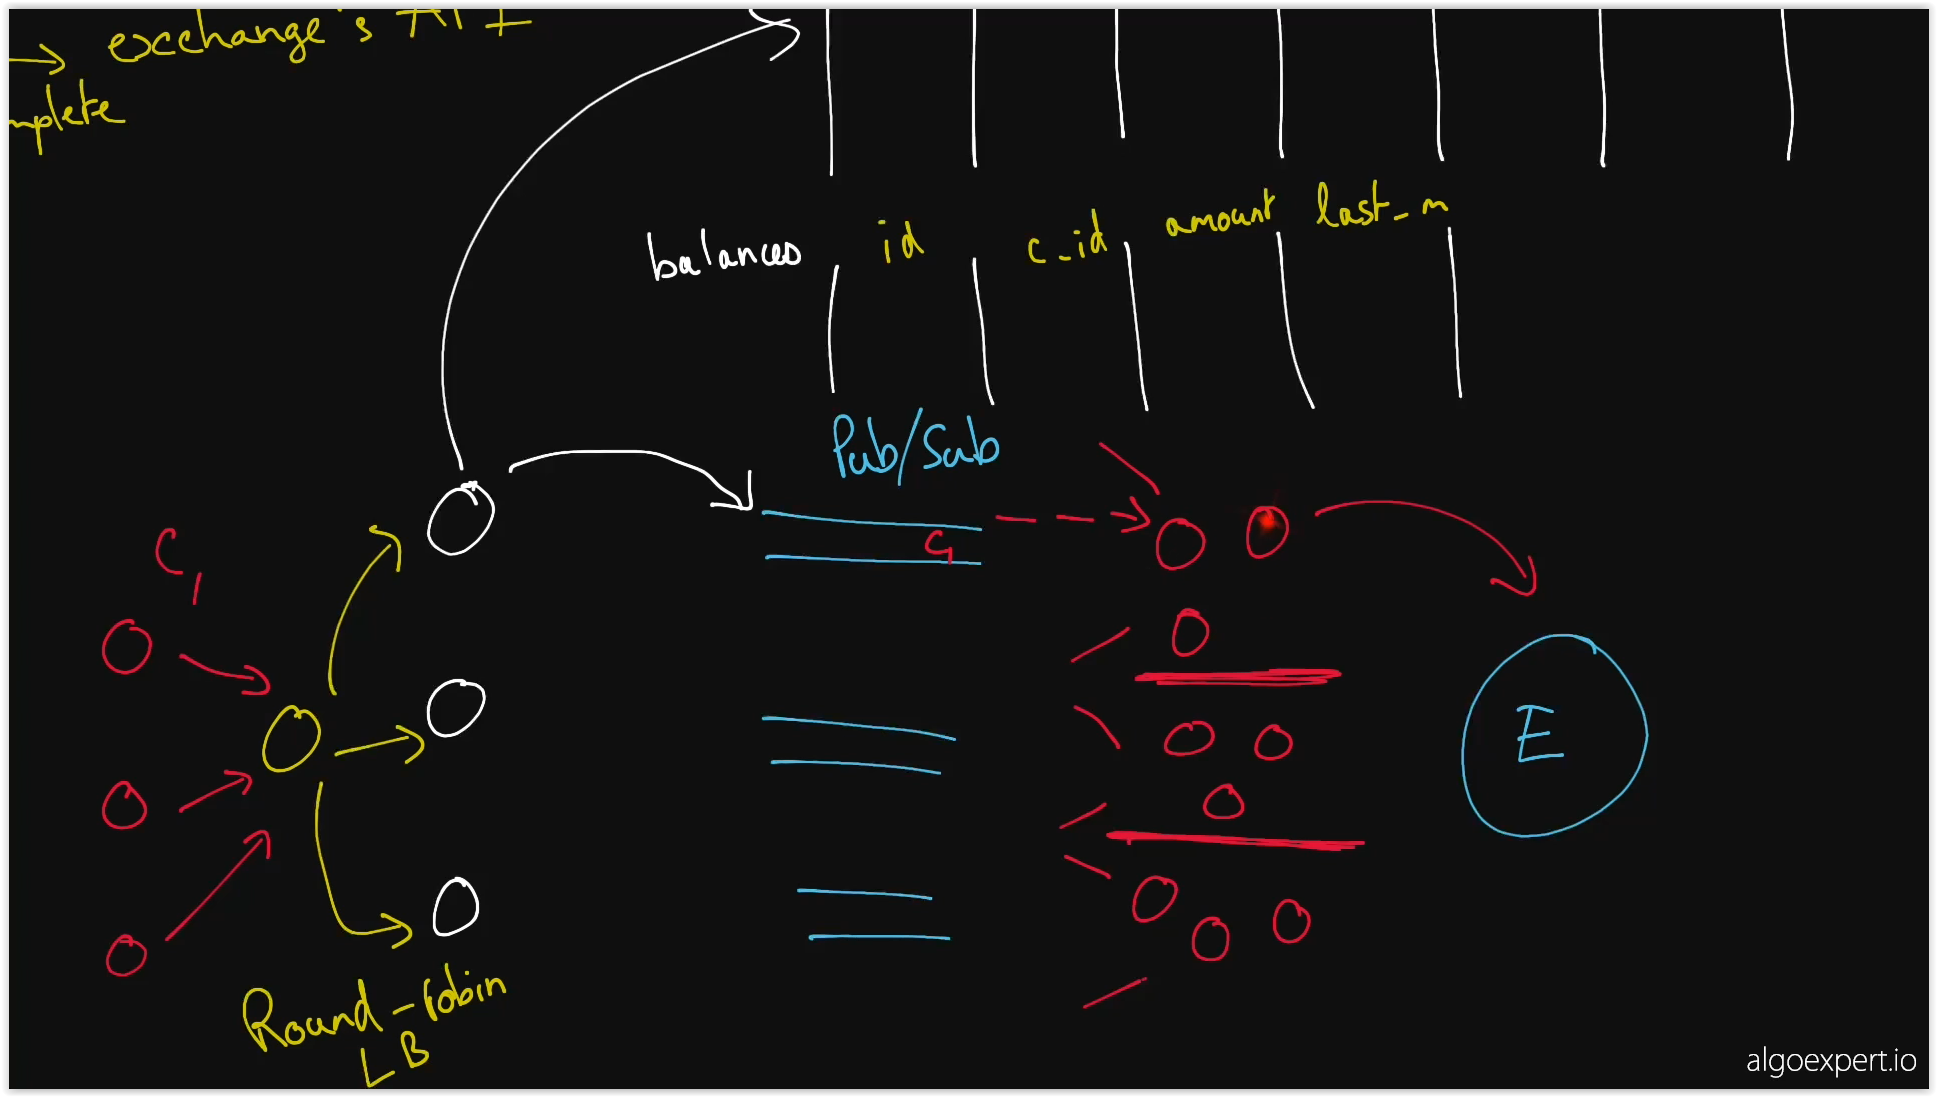 exchange's API
mplete
balances id c_id amount last_m
Pub/Sub
C1
C1
E
Round-robin
LB
algoexpert.io